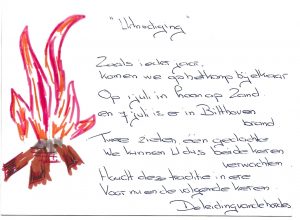 "Uitnodiging"
Zoals ieder jaar,
komen we op het kamp bij elkaar
Op 1 juli in
en 7 juli is er in Bilthoven
brand
Twee zielen, één gedachte
We kunnen U dus beide keren
verwachten.
Houdt deze traditie in ere
Voor nu en de volgende keren.
De leiding van de hordes